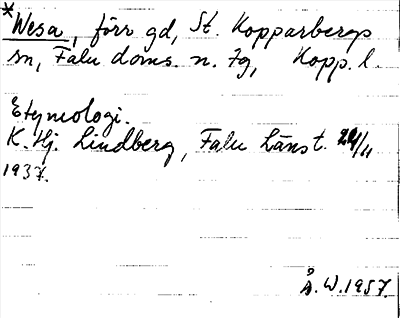 *Wesa, förr gd, St. Kopparbergs
sn, Falu doms. n. tg, Kopp. l.
Etymologi.
K. Hj. Lindberg, Falu Länst. 24/11
1937.
Å. W. 1957.